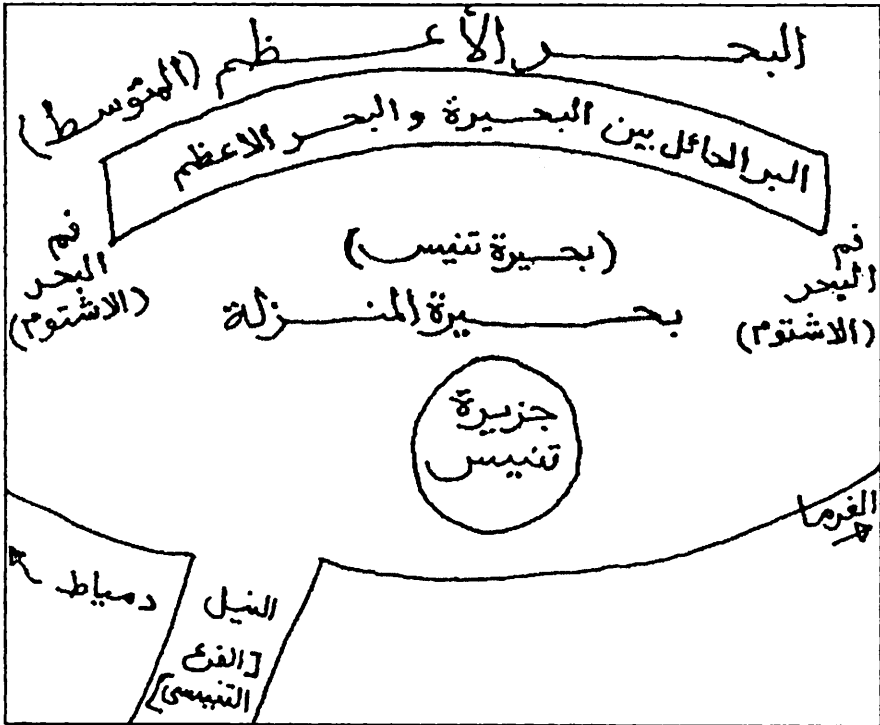 البحر الأعظم (المتوسط)
البر الحائل بين البحيرة و البحر الاعظم
فم
البحر
(الاشتوم)
(بحيرة تنيس)
بحيرة المنزلة
فم
البحر
(الاشتوم)
جزيرة
تنيس
الفرما
دمياط
النيل
[الفرع
التنيسى]